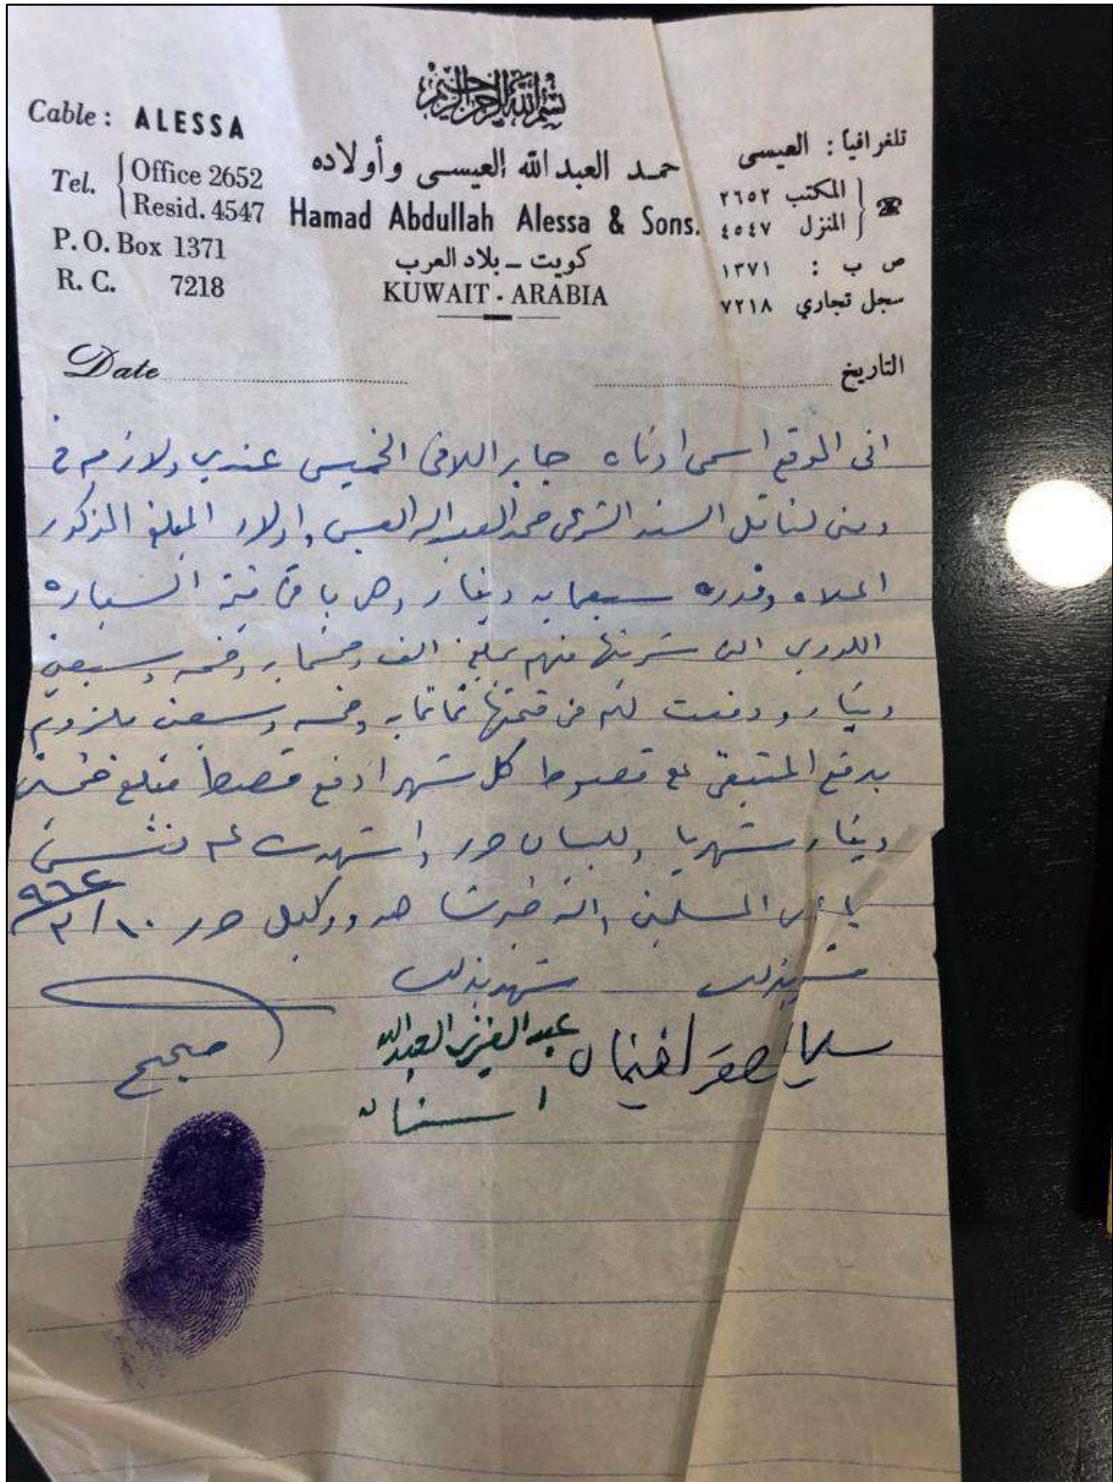 بسم الله الرحمن الرحيم
Cable : ALESSA
Tel. Office 2652
Resid. 4547
P. O. Box 1371
R. C. 7218
حمد العبد الله العيسى وأولاده
Hamad Abdullah Alessa & Sons.
كويت - بلاد العرب
KUWAIT - ARABIA
تلغرافياً : العيسى
المكتب ٢٦٥٢
المنزل ٤٥٤٧
ص ب : ١٣٧١
سجل تجاري ٧٢١٨
Date
التاريخ
انى الموقع اسمى ادناه جابر اللافى الخميس عندي ولازم في
ذمتى لناقل السند الشرعى حمد العبدالله العيسى واولاده المبلغ المذكور
اعلاه وقدره سبعمايه دينار وهى باقى قيمة السياره
اللوري التى شريتها منهم بمبلغ الف وخمسمايه وخمسه وسبعين
دينار ودفعت لهم من قيمتها ثمانمايه وخمسه وسبعين ملزوم
بدفع المتبقى على قصوط كل شهر ادفع قصط مبلغ خمسين
دينار شهريا وللبيان حرر واشهدت على نفسى
المسلمين والله خير شاهد ووكيل حرر ١٠/٣/٩٦٤
شهد بذلك
شهد بذلك
عبدالعزيز العبدالله
صحيح